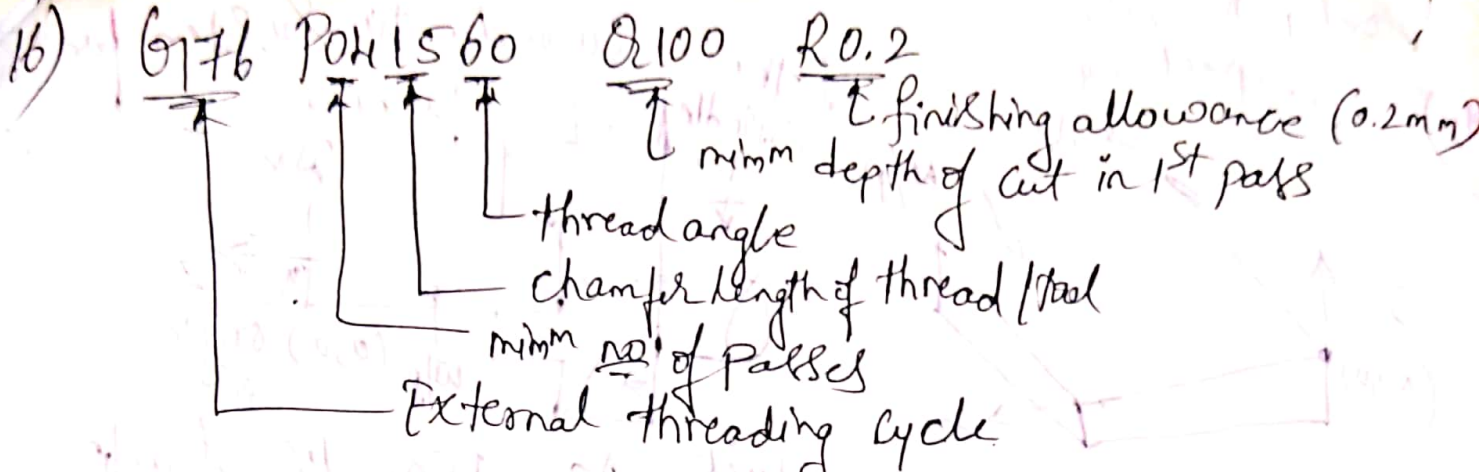 16) G76 P041560 Q100 R0.2
finishing allowance (0.2mm)
minm depth of cut in 1st pass
thread angle
chamfer length of thread / tool
minm no. of passes
External threading cycle